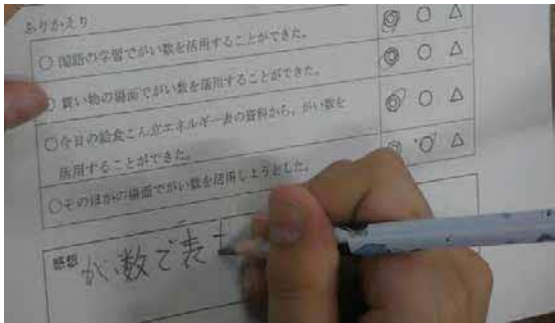 ふりかえり
○国語の学習でがい数を活用することができた。 ◎ ○ △
○買い物の場面でがい数を活用することができた。 ◎ ○ △
○今日の給食こん立エネルギー表の資料から、がい数を ◎ ○ △
活用することができた。
○そのほかの場面でがい数を活用しようとした。 ◎ ○ △
感想
がい数で表